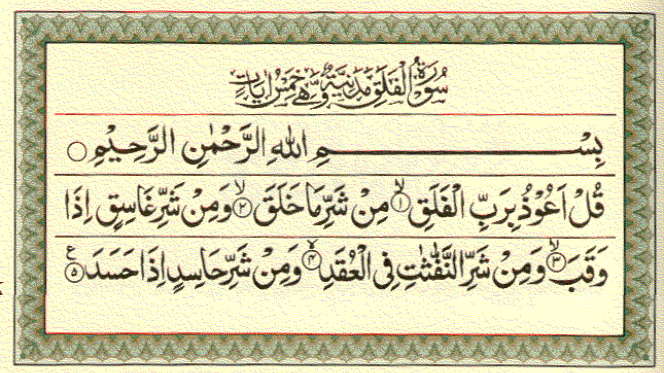 سُوْرَةُ الْفَلَقِ مَدَنِيَّةٌ وَّهِيَ خَمْسُ اٰيَاتٍ
بِسْمِ اللهِ الرَّحْمٰنِ الرَّحِيْمِ ○
قُلْ اَعُوْذُ بِرَبِّ الْفَلَقِ ۙ﴿۱﴾ مِنْ شَرِّ مَا خَلَقَ ۙ﴿۲﴾ وَ مِنْ شَرِّ غَاسِقٍ اِذَا
وَقَبَ ۙ﴿۳﴾ وَ مِنْ شَرِّ النَّفّٰثٰتِ فِی الْعُقَدِ ۙ﴿۴﴾ وَ مِنْ شَرِّ حَاسِدٍ اِذَا حَسَدَ ﴿۵﴾ ع